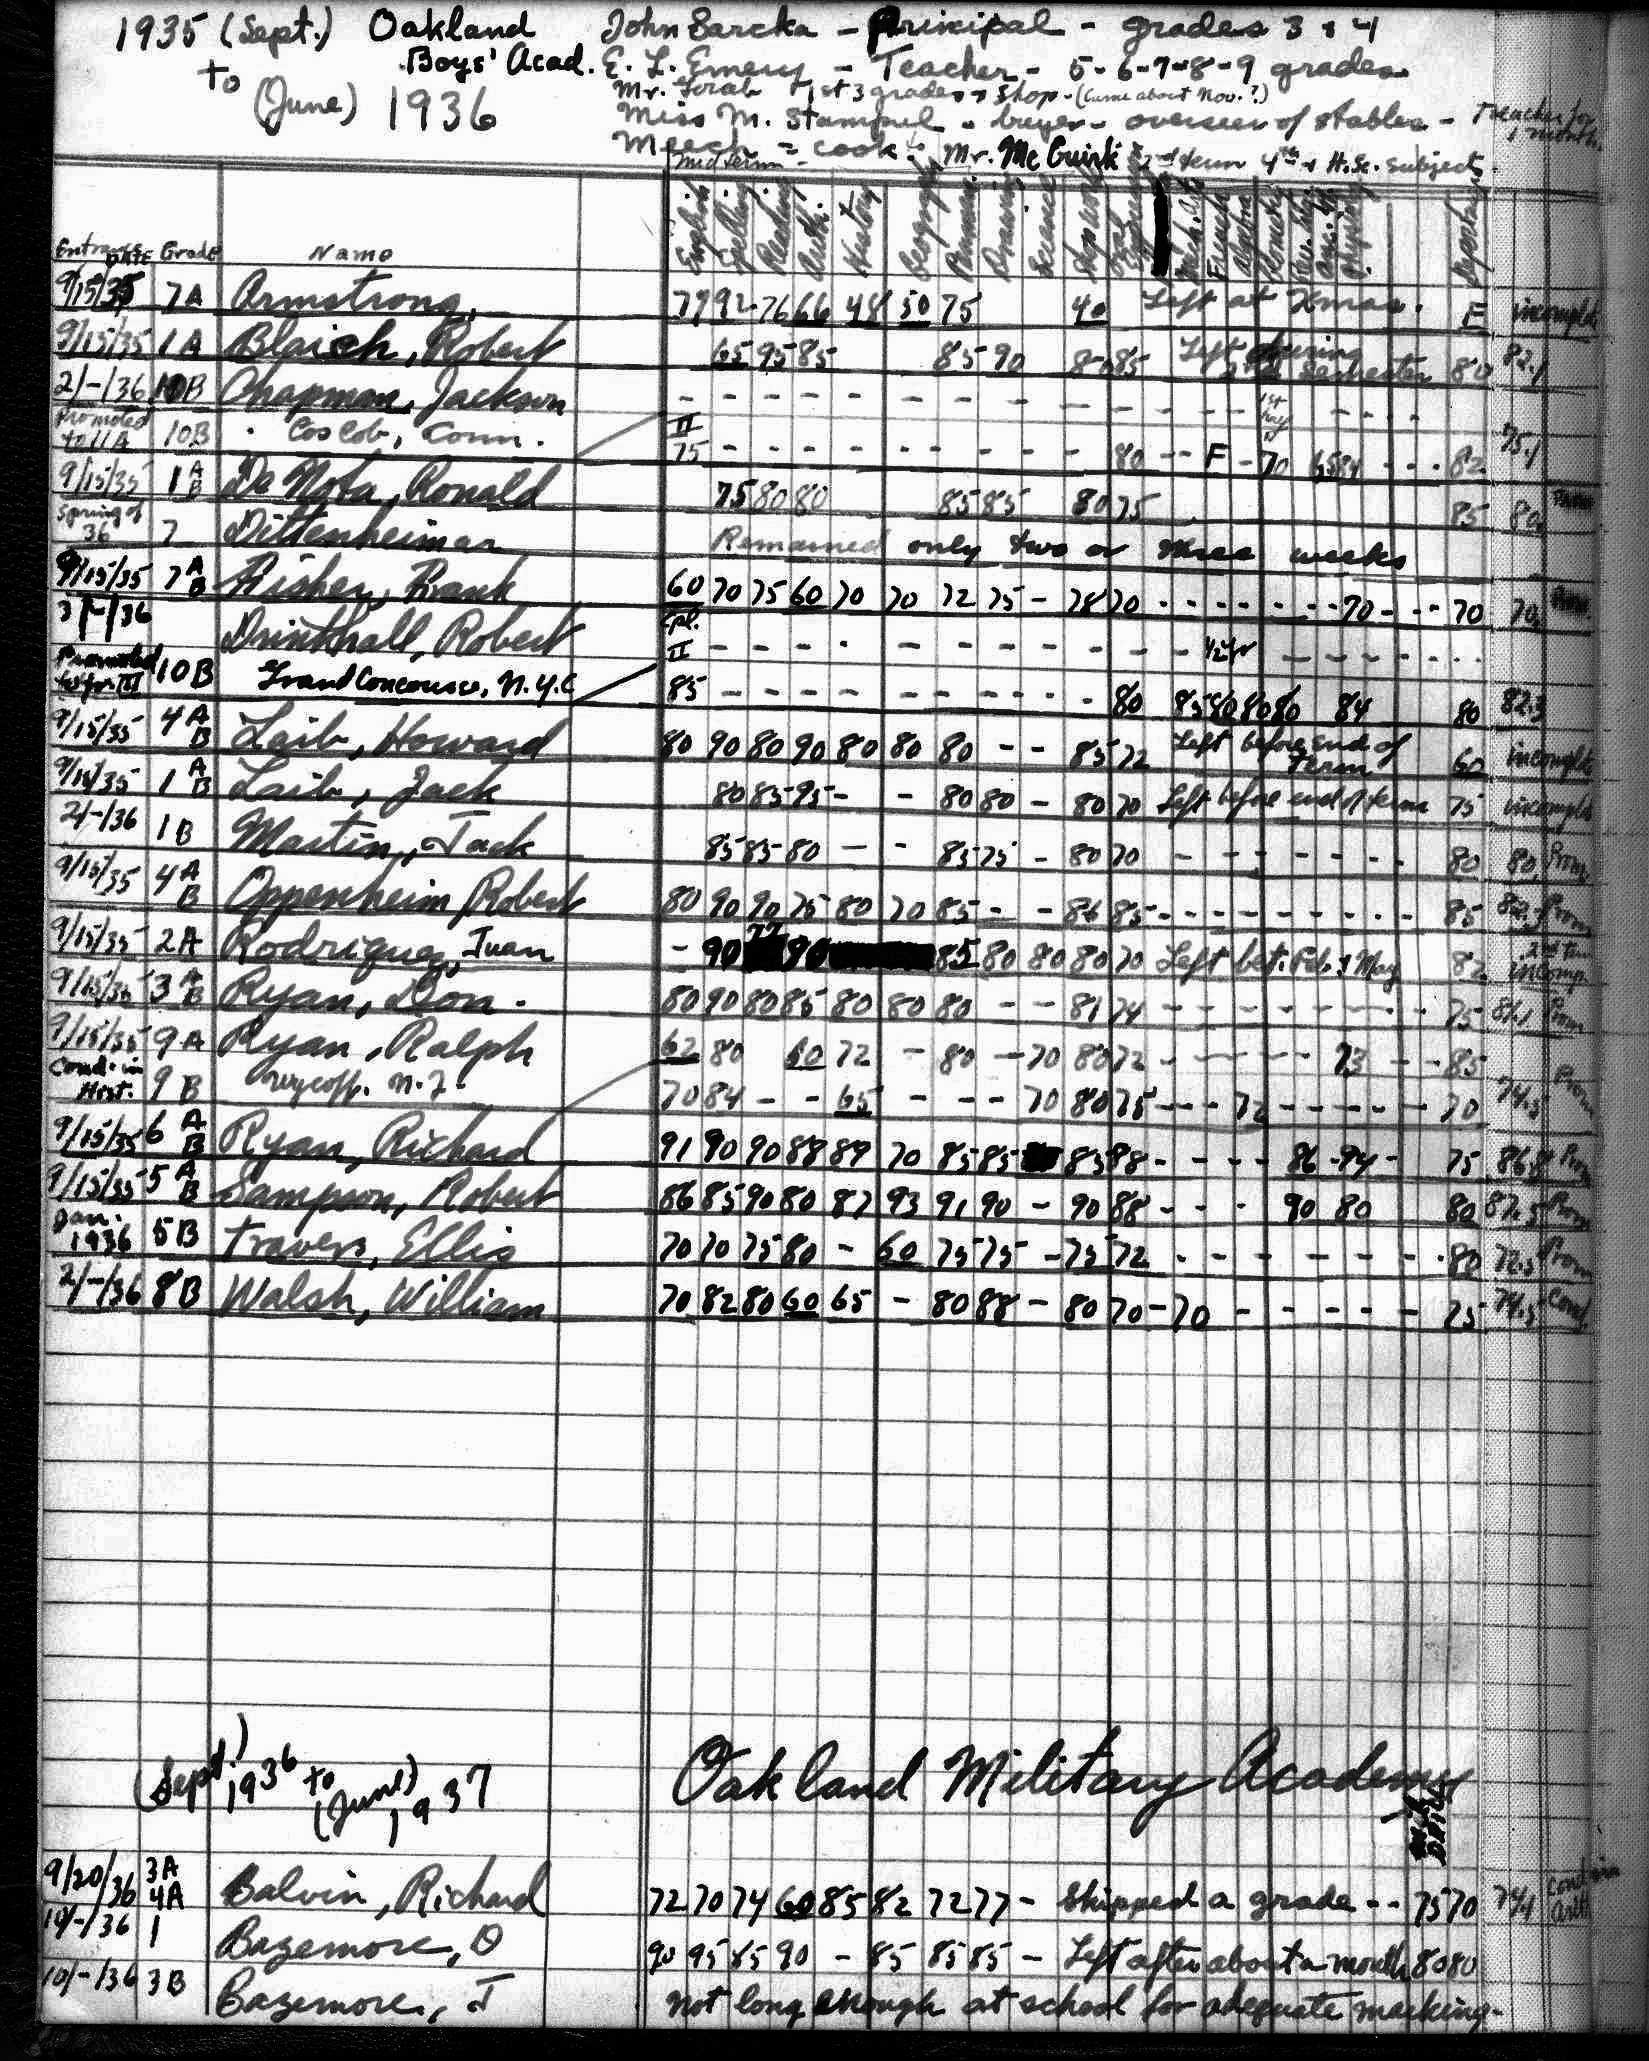 1935 (Sept.) Oakland John Sarcka - Principal - grades 3 & 4
to Boys' Acad. E. L. Emery - Teacher - 5-6-7-8-9 grades
(June) 1936 Mr. 1st 3 grades & shop - (Came about Nov.?)
Miss M. Stampul - buyer - overseer of stables - Teacher for 1 month.
Meech = cook. Mr. McGuirk 2nd term 4th & H.Sc. subjects.
mid term
Entrance Date Grade Name English Spelling Reading Arith. History Geography Drawing Science French Algebra
9/15/35 7A Armstrong, 77 92 76 66 48 50 75 40 Left at Xmas. F incomplete
9/15/35 1A Blaich, Robert 65 95 85 85 90 80 85 Left during 2nd semester 80 82.1
2/-/36 10B Chapman, Jackson - - - - - - - - - - - - 1st - - - -
Promoted to 11A 10B Cos Cob, Conn. II 75 - - - - - - - - - 80 - - F - 70 65 84 - - - 82 75.1
9/15/35 1 A B De Nota, Ronald 75 80 80 85 85 80 75 85 80
Spring of 36 7 Dittenheimer Remained only two or three weeks
9/15/35 7 A B Fisher, Frank 60 70 75 60 70 70 72 75 - 78 70 - - - - - - 70 - - - 70 70
3/-/36 Drinkhall, Robert Cpl. II - - - - - - - - - - - 1/2 yr - - - - - -
Promoted 10B Grand Concourse, N.Y.C 85 - - - - - - - - - 80 85 80 80 80 84 80 82.3
9/15/35 4 A B Laib, Howard 80 90 80 90 80 80 80 - - 85 72 Left before end of term 60 incomplete
9/15/35 1 A B Laib, Jack 80 85 95 - - 80 80 - 80 70 Left before end of term 75 incomplete
2/-/36 1B Martin, Jack 85 85 80 - - 85 75 - 80 70 - - - - - - - 80 80 Prom.
9/15/35 4 A B Oppenheim, Robert 80 90 90 75 80 70 85 - - 86 85 - - - - - - - - 85 82.3 Prom
9/15/35 2A Rodriguez, Juan - 90 77 90 85 80 80 80 70 Left bet. Feb. & May 82 2nd term incomp.
9/15/35 3 A B Ryan, Don. 80 90 80 85 80 80 80 - - 81 74 - - - - - - - - 75 81.1 Prom
9/15/35 9A Ryan, Ralph 62 80 60 72 - 80 - 70 80 72 - - - - - 73 - - 85
Cond. in Hist. 9B Wycoff, N.J. 70 84 - - 65 - - - 70 80 75 - - - 72 - - - - - 70 74.5 Prom
9/15/35 6 A B Ryan, Richard 91 90 90 88 89 70 85 85 83 88 - - - - 86 - 94 - 75 86.8 Prom
9/15/35 5 A B Sampson, Robert 86 85 90 80 87 93 91 90 - 90 88 - - - 90 80 80 87.5 Prom
Jan. 1936 5B Travers, Ellis 70 70 75 80 - 60 75 75 - 75 72 - - - - - - - 80 72.5 Prom
2/-/36 8B Walsh, William 70 82 80 60 65 - 80 88 - 80 70 - 70 - - - - - - 75 74.5 Cond.
(Sept.) 1936 to (June) 1937 Oakland Military Academy
9/20/36 3A 4A Balvin, Richard 72 70 74 60 85 82 72 77 - Skipped a grade - - 75 70 74.1 Cond. in Arith
10/-/36 1 Bazemore, O 90 95 85 90 - 85 85 85 - Left after about a month 80 80
10/-/36 3B Bazemore, J not long enough at school for adequate marking.